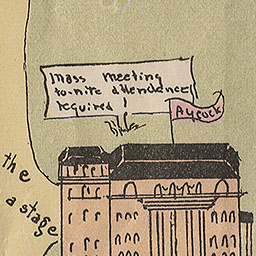 mass meeting
to-nite attendance
required !
Aycock
the
a stage